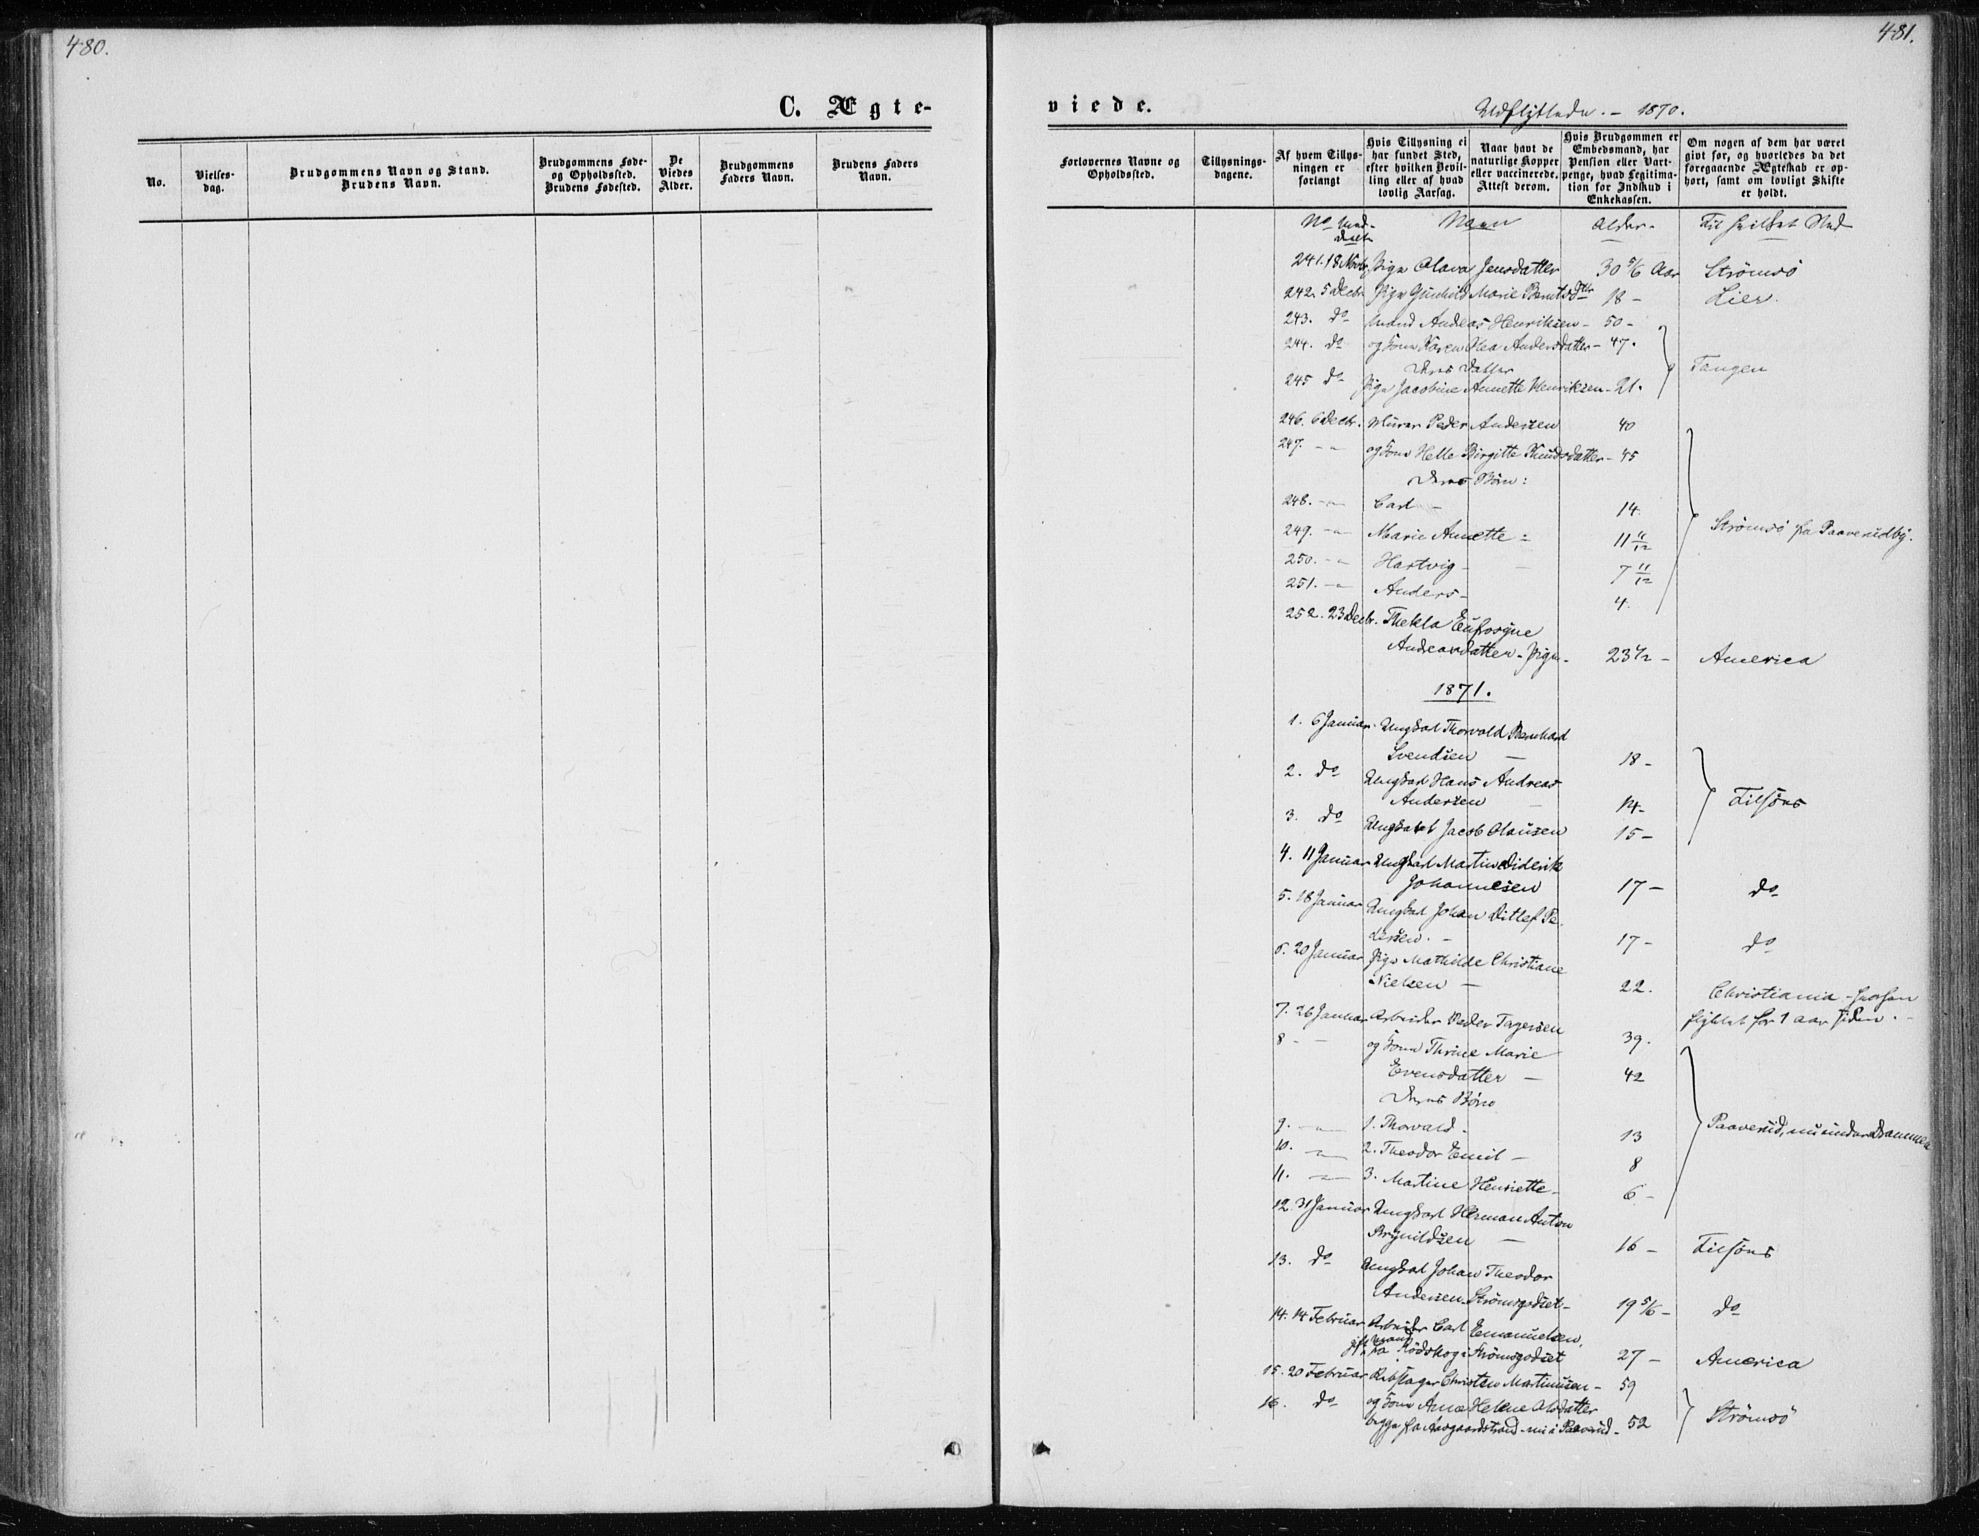 480.
481.
C. Ægte-
viede.
Udflyttede. - 1870.
No.
Vielses-
dag.
Brudgommens Navn og Stand.
Brudens Navn.
Brudgommens Føde-
og Opholdssted.
Brudens Fødested.
De
Viedes
Alder.
Brudgommens
Faders Navn.
Brudens Faders
Navn.
Forlovernes Navne og
Opholdssted.
Tillysnings-
dagene.
Af hvem Tillys-
ningen er
forlangt
Hvis Tillysning ei
har fundet Sted,
efter hvilken Bevil-
ling eller af hvad
lovlig Aarsag.
Naar havt de
naturlige Kopper
eller vaccinerede.
Attest derom.
Hvis Brudgommen er
Embedsmand, har
Pension eller Vart-
penge, hvad Legitima-
tion for Indskud i
Enkekassen.
Om nogen af dem har været
givt før, og hvorledes da det
foregaaende Ægteskab er op-
hørt, samt om lovligt Skifte
er holdt.
No Navn Alder. Til hvilket Sted
241. 18 Novbr Pige Olava Jensdatter 30 5/6 Aar Strömsö
242. 5 Decbr Pige Gunhild Marie Berntsdtr 18 - Lier.
243. do Mand Andeas Henriksen - 50 -
244. do og Kone Karen Olea Andersdatter - 47.
Deres Datter
245 do Pige Jacobine Annette Henriksen - 21. Tangen
246. 6 Decbr. Murer Peder Andersen 40
247. - og Kone Helle Birgitte Knudsdatter - 45
Deres Börn:
248. - Carl - 14.
249. - Marie Annette - 11 11/12 Strömsö fra Paaverudby.
250. - Hartvig - 7 11/12
251. - Anders - 4.
252. 23 Decbr. Thekla Eufrosyne
Andreasdatter - Pige - 23 1/2 - America
1871.
1. 6 Januar Ungkarl Thorvald Bernhard
Svendsen - 18 -
2. do Ungkarl Hans Andreas
Andersen - 14 - Tilsöes
3. do Ungkarl Jacob Olausen 15 -
4. 11 Januar Ungkarl Martin Diderik
Johannesen 17 - do
5. 18 Januar Ungkarl Johan Ditlef Pe-
dersen. - 17 - do
6. 20 Januar Pige Mathilde Christiane
Nielsen - 22. Christiania - hvorhen
flyttet for 1 aar siden. -
7. 26 Januar Arbeider Peder Tagersen 39.
8 - - og Kone Thrine Marie
Evensdatter - 42
Deres Börn
9. - 1. Thorvald. 13 Paaverud, nu under Drammen
10. - 2. Theodor Emil - 8
11. - 3. Martine Henriette - 6 -
12. 31 Januar Ungkarl Herman Anton
Brynildsen - 16 - Tilsöes
13. do Ungkarl Johan Theodor
Andersen Strömsgodset - 19 5/6 - do
14. 14 Februar Arbeider Carl Emanuelsen,
gift Mand fra Rödskog i Strömsgodset 27 - America
15. 20 Februar Rebslager Christen Martinusen - 59
16. do og Kone Anne Helene Olsdatter
begge fra Aasgaardstrand - nu i Paaverud - 52 Strömsö